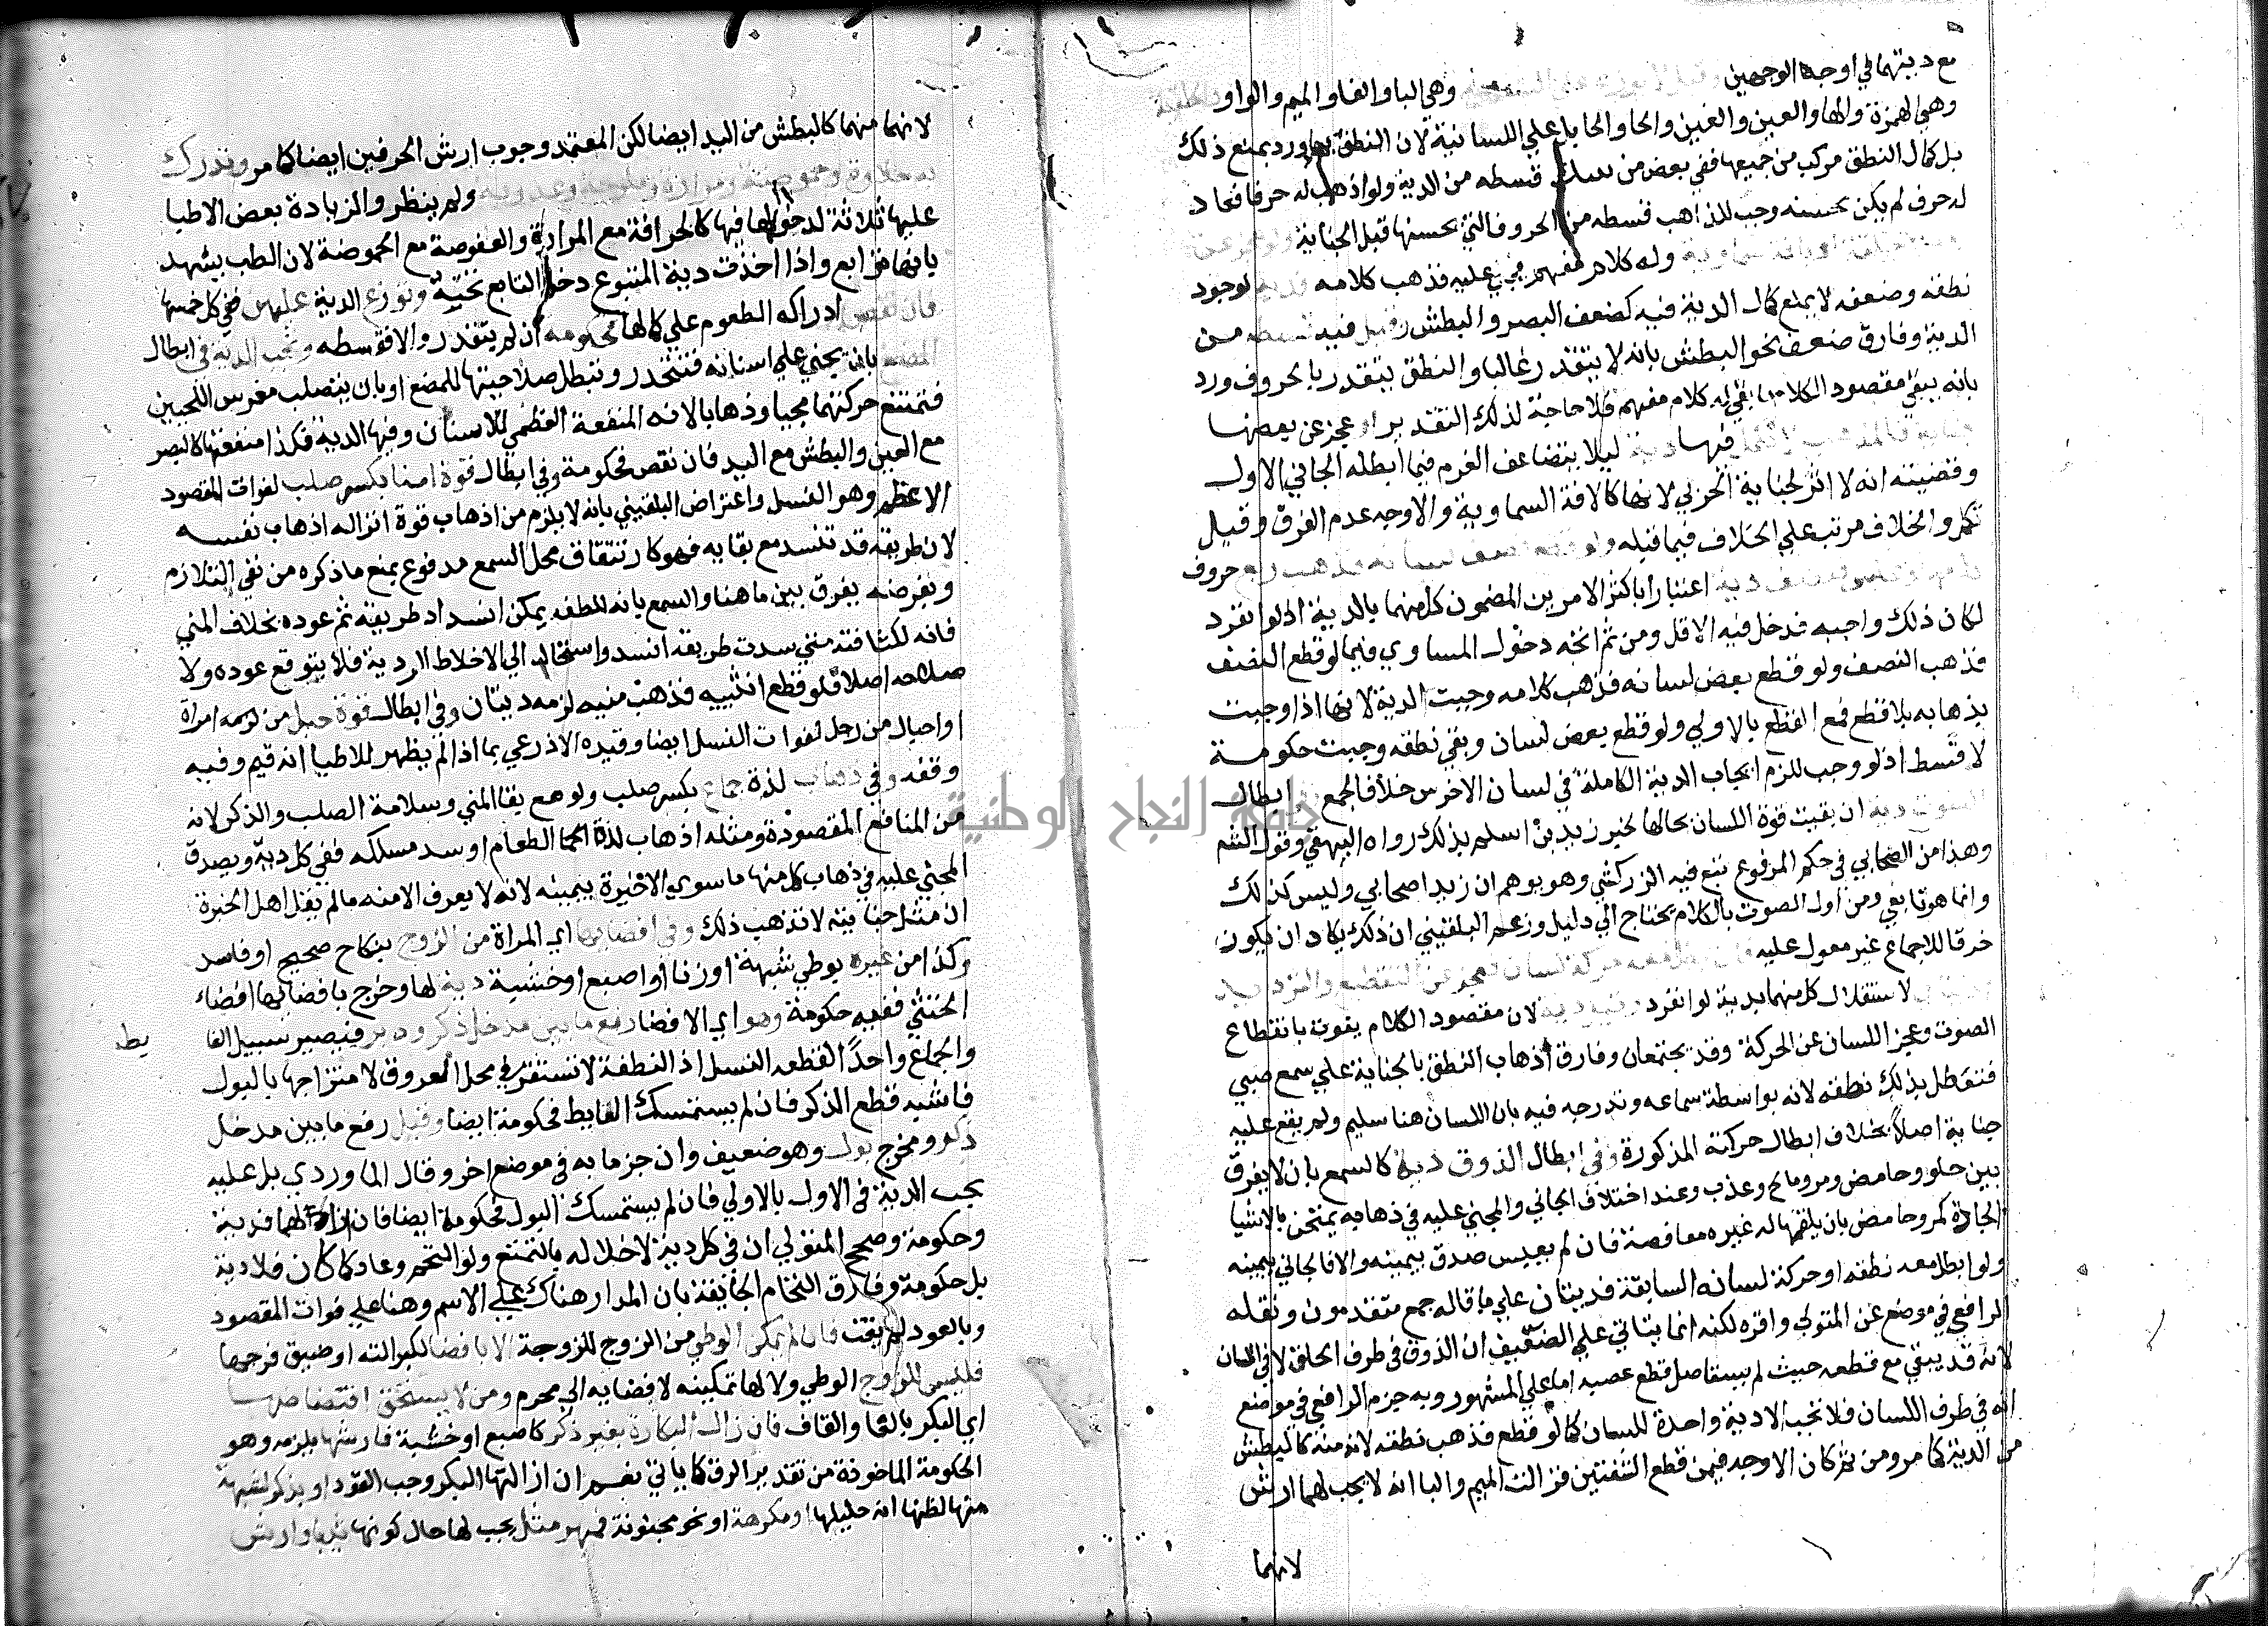 مع ديتهما في اوجه الوجهين وهي البا والفا والميم والواو
وهي الهمزة والها والعين والغين والحا والخا يا علي اللسانية لان النطق بها ورد بمنع ذلك
بل كمال النطق مركب من جميعها ففي بعض من قسطه من الدية ولو اذهب له حرفا فعاد
له حرف لم يكن يحسنه وجب للذاهب قسطه من الحروف التي يحسنها قبل الجناية
وله كلام مفهم فجني عليه فذهب كلامه لوجود
نطقه وضعفه لا يمنع كمال الدية فيه كضعف البصر والبطش وقيل فيه قسطه من
الدية وفارق ضعف نحو البطش بانه لا يتقدر غالبا والنطق يتقدر بالحروف ورد
بانه يبقي مقصود الكلام ما بقي له كلام مفهم فلا حاجة لذلك التقدير او عجز عن بعضها
فيها دية ليلا يتضاعف الغرم فيما ابطله الجاني الاول
وقضيته انه لا اثر لجناية الحربي لانها كالافة السماوية والاوجه عدم الفرق وقيل
تكمل والخلاف مرتب علي الخلاف فيما قبله ولو قطع نصف لسانه فذهب ربع حروف
نصف دية اعتبارا باكثر الامرين المضمون كل منهما بالدية اذ لو انفرد
لكان ذلك واجبه فدخل فيه الاقل ومن ثم اتجه دخول المساوي فيما لو قطع النصف
فذهب النصف ولو قطع بعض لسانه فذهب كلامه وجبت الدية لانها اذا وجبت
بذهابه بلا قطع فمع القطع بالاولي ولو قطع بعض لسان وبقي نطقه وجبت حكومة
لا قسط اذ لو وجب للزم ايجاب الدية الكاملة في لسان الاخرس خلافا لجمع وفي ابطال
الصوت دية ان بقيت قوة اللسان بحالها لخبر زيد بن اسلم بذلك رواه البيهقي وقول الشم
وهذا من الصحابي في حكم المرفوع تبع فيه الزركشي وهو يوهم ان زيدا صحابي وليس كذلك
وانما هو تابعي ومن اول الصوت بالكلام يحتاج الي دليل وزعم البلقيني ان ذلك يكاد ان يكون
خرقا للاجماع غير معول عليه فان بطل معه حركة لسان فعجز عن التقطيع والترديد
لاستقلال كل منهما بدية لو انفرد وقيل دية لان مقصود الكلام يفوت بانقطاع
الصوت وعجز اللسان عن الحركة وقد يجتمعان وفارق اذهاب النطق بالجناية علي سمع صبي
فتعطل بذلك نطقه لانه بواسطة سماعه وتدرجه فيه بان اللسان هنا سليم ولم يقع عليه
جناية اصلا بخلاف ابطال حركته المذكورة وفي ابطال الذوق دية كالسمع بان لا يفرق
بين حلو وحامض ومر ومالح وعذب وعند اختلاف الجاني والمجني عليه في ذهابه يمتحن بالاشيا
الحادة كمر وحامض بان يلقمها له غيره معافصة فان لم يعبس صدق بيمينه والا فالجاني بيمينه
ولو ابطل معه نطقه او حركة لسانه السابقة فديتان علي ما قاله جمع متقدمون ونقله
الرافعي في موضع عن المتولي واقره لكنه انما يتاتي علي الضعيف ان الذوق في طرف الحلق لا في اللسان
لانه قد يبقي مع قطعه حيث لم يستاصل قطع عصبه اما علي المشهور وبه جزم الرافعي في موضع
انه في طرف اللسان فلا تجب الا دية واحدة للسان كما لو قطع فذهب نطقه لانه منه كالبطش
من الدية كما مر ومن ثم كان الاوجه فيمن قطع الشفتين فزالت الميم والبا انه لا يجب لهما ارش
لانهما
لانهما منهما كالبطش من اليد ايضا لكن المعتمد وجوب ارش الحرفين ايضا كما مر وتدرك
به حلاوة وحموضة ومرارة وملوحة وعذوبة ولم ينظروا لزيادة بعض الاطبا
عليها ثلاثة لدخولها فيها كالحرافة مع المرارة والعفوصة مع الحموضة لان الطب يشهد
بانها توابع واذا اخذت دية المتبوع دخل التابع تحته وتوزع الدية عليهن ففي كل خمسها
فان نقص ادراكه الطعوم علي كمالها فحكومة ان لم يتقدر والا فقسطه وتجب الدية في ابطال
المضغ بان يجني علي اسنانه فتتخدر وتبطل صلاحيتها للمضغ او بان يتصلب مغرس اللحيين
فتمتنع حركتهما مجيا وذهابا لانه المنفعة العظمي للاسنان وفيها الدية فكذا منفعتها كالبصر
مع العين والبطش مع اليد فان نقص فحكومة وفي ابطال قوة امنا بكسر صلب لفوات المقصود
الاعظم وهو النسل واعتراض البلقيني بانه لا يلزم من اذهاب قوة انزاله اذهاب نفسه
لان طريقه قد تنسد مع بقايه فهو كارتتاق محل السمع مدفوع بمنع ما ذكره من نفي التلازم
وبفرضه يفرق بين ما هنا والسمع بانه للطفه يمكن انسداد طريقه ثم عوده بخلاف المني
فانه لكثافته متي سدت طريقه انسد واستحال الي الاخلاط الردية فلا يتوقع عوده ولا
صلاحه اصلا فلو قطع انثييه فذهب منيه لزمه ديتان وفي ابطال قوة حبل من نومه امراة
او احبال من رجل لفوات النسل ايضا وقيده الاذرعي بما اذا لم يظهر للاطبا انه قيم وفيه
وقفه وفي ذهاب لذة جماع بكسر صلب ولو مع بقا المني وسلامة الصلب والذكر لانه
من المنافع المقصودة ومثله اذهاب لذة الطعام او سد مسلكه ففي كل دية ويصدق
المجني عليه في ذهاب كل منها ما سوي الاخيرة بيمينه لانه لا يعرف الا منه ما لم يقل اهل الخبرة
ان مثل جنايته لا تذهب ذلك وفي افضائها اي المراة من الزوج بنكاح صحيح او فاسد
وكذا من غيره بوطي شبهة او زنا او اصبع او خشبة دية لها وخرج بافضائها افضاء
الخنثي ففيه حكومة وهو اي الافضا رفع ما بين مدخل ذكر ودبر فيصير سبيل الغا
يط
والجماع واحدا لقطعه النسل اذ النطفة لا تستقر في محل العروق لامتزاجها بالبول
فاشبه قطع الذكر فان لم يستمسك الغايط فحكومة ايضا وقيل رفع ما بين مدخل
ذكر ومخرج بول وهو ضعيف وان جزما به في موضع اخر وقال الماوردي بل عليه
تجب الدية في الاول بالاولي فان لم يستمسك البول فحكومة ايضا فان ازالهما فدية
وحكومة وصحح المتولي ان في كل دية لاخلاله بالتمتع ولو التحم وعاد كما كان فلا دية
بل حكومة وفارق التحام الجائفة بان المدار هناك علي الاسم وهنا علي فوات المقصود
وبالعود لم يفت فان لم يمكن الوطي من الزوج للزوجة الا بافضا لكبر الته او ضيق فرجها
فليس للزوج الوطي ولا لها تمكينه لافضايه الي محرم ومن لا يستحق افتضاضها
اي البكر بالفا والقاف فان زال البكارة بغير ذكر كاصبع او خشبة فارشها يلزمه وهو
الحكومة الماخوذة من تقدير الرق كما ياتي نعم ان ازالتها البكر وجب القود او بذكر لشبهة
منها لظنها انه حليلها او مكرهة او نحو مجنونة فمهر مثل يجب لها حال كونها ثيبا وارش
جامعة النجاح الوطنية